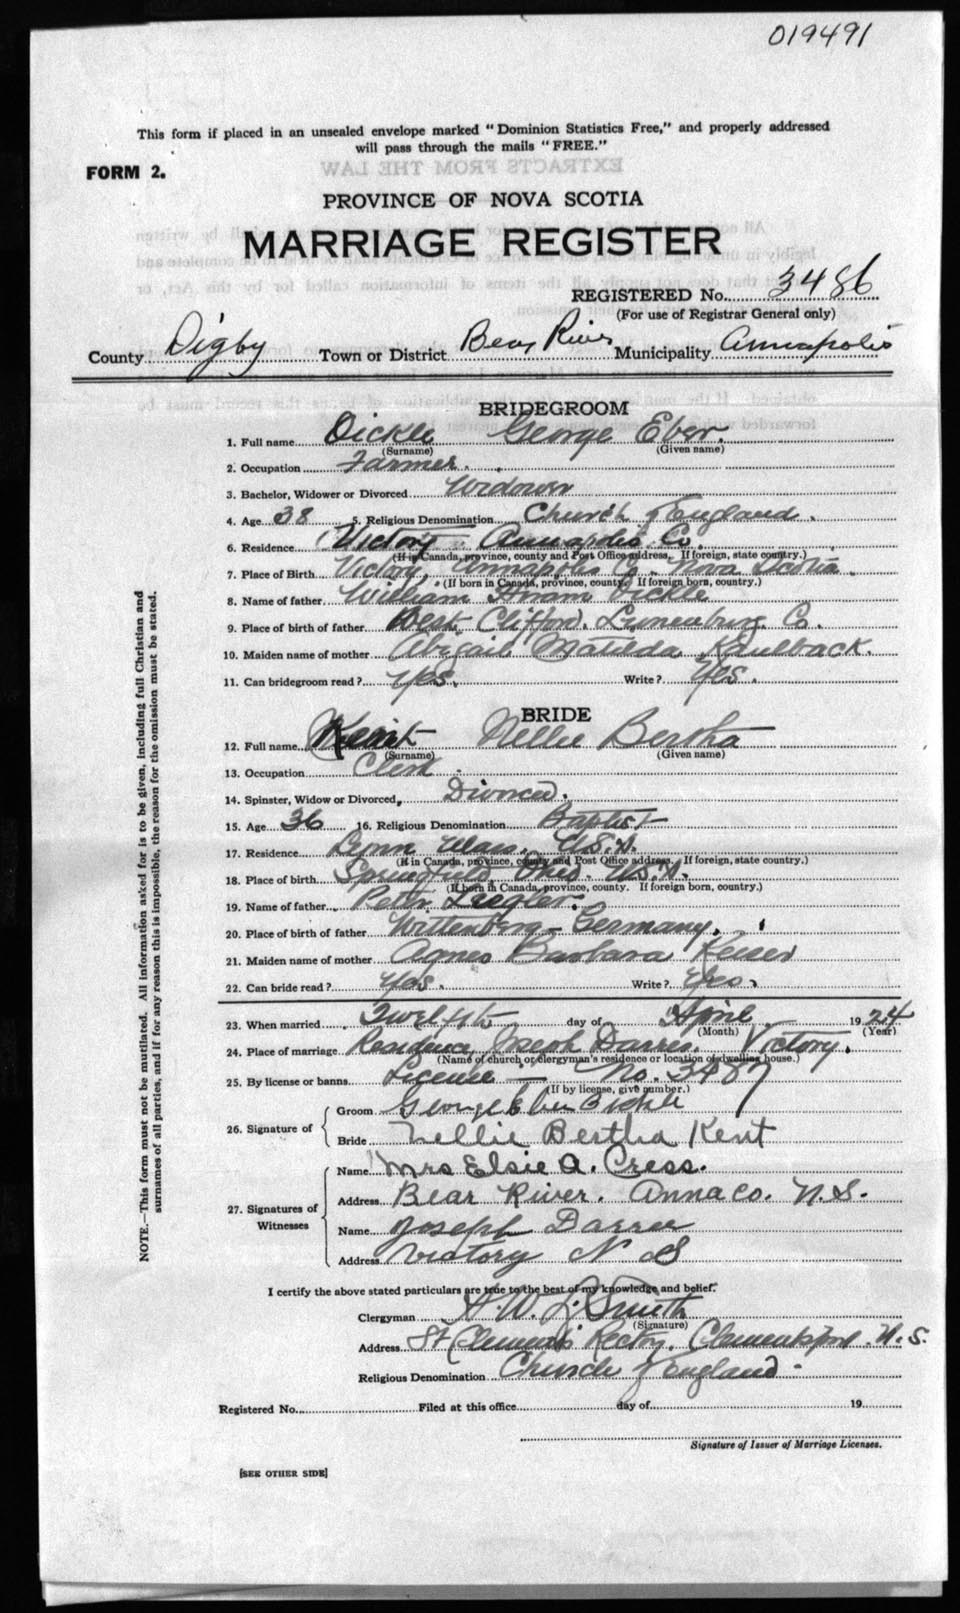 019491
This form if placed in an unsealed envelope marked "Dominion Statistics Free," and properly addressed
will pass through the mails "FREE."
FORM 2.
EXTRACTS FROM THE LAW
PROVINCE OF NOVA SCOTIA
MARRIAGE REGISTER
REGISTERED No. 3486
(For use of Registrar General only)
County Digby Town or District Bear River Municipality Annapolis
BRIDEGROOM
1. Full name Dickle George Eber.
(Surname) (Given name)
2. Occupation Farmer.
3. Bachelor, Widower or Divorced Widower
4. Age 38 5. Religious Denomination Church of England.
6. Residence Victory Annapolis Co.
(If in Canada, province, county and Post Office address. If foreign, state country.)
7. Place of Birth Victory, Annapolis Co. Nova Scotia.
(If born in Canada, province, county. If foreign born, country.)
8. Name of father William Hiram Dickle
9. Place of birth of father West Clifford. Lunenburg Co.
10. Maiden name of mother Abigail Matilda Kaulback.
11. Can bridegroom read? Yes. Write? Yes.
BRIDE
12. Full name Kent Nellie Bertha
(Surname) (Given name)
13. Occupation Clerk
14. Spinster, Widow or Divorced, Divorced.
15. Age 36 16. Religious Denomination Baptist
17. Residence Lynn Mass. U.S.A.
(If in Canada, province, county and Post Office address. If foreign, state country.)
18. Place of birth Springfield, Ohio. U.S.A.
(If born in Canada, province, county. If foreign born, country.)
19. Name of father Peter Ziegler.
20. Place of birth of father Wittenberg – Germany.
21. Maiden name of mother Agnes Barbara Keiser
22. Can bride read? Yes. Write? Yes.
23. When married Twelfth day of April 1924
(Month) (Year)
24. Place of marriage Residence, Joseph Darres. Victory.
(Name of church or clergyman's residence or location of dwelling house.)
25. By license or banns Licence — No. 3487
(If by license, give number.)
26. Signature of Groom George Eber Dickle
Bride Nellie Bertha Kent
27. Signatures of Witnesses Name Mrs Elsie A. Cress.
Address Bear River. Anna Co. N.S.
Name Joseph Darres
Address Victory N S
I certify the above stated particulars are true to the best of my knowledge and belief.
Clergyman A. W. L. Smith
(Signature)
Address St Clements Rectory, Clementsport N.S.
Religious Denomination Church of England
Registered No. Filed at this office day of 19
Signature of Issuer of Marriage Licenses.
[SEE OTHER SIDE]
NOTE.—This form must not be mutilated. All information asked for is to be given, including full Christian and
surnames of all parties, and if for any reason this is impossible, the reason for the omission must be stated.